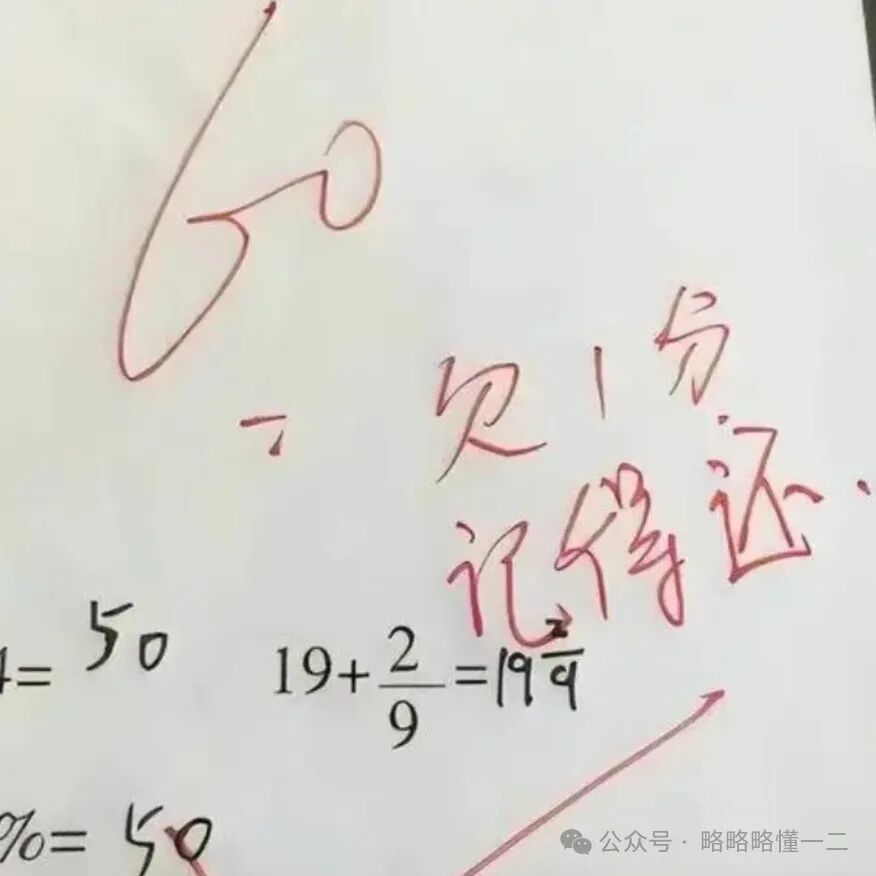 60
欠1分
记得还.
4= 50 19+2/9=19 2/9
%= 50
公众号 · 略略略懂一二